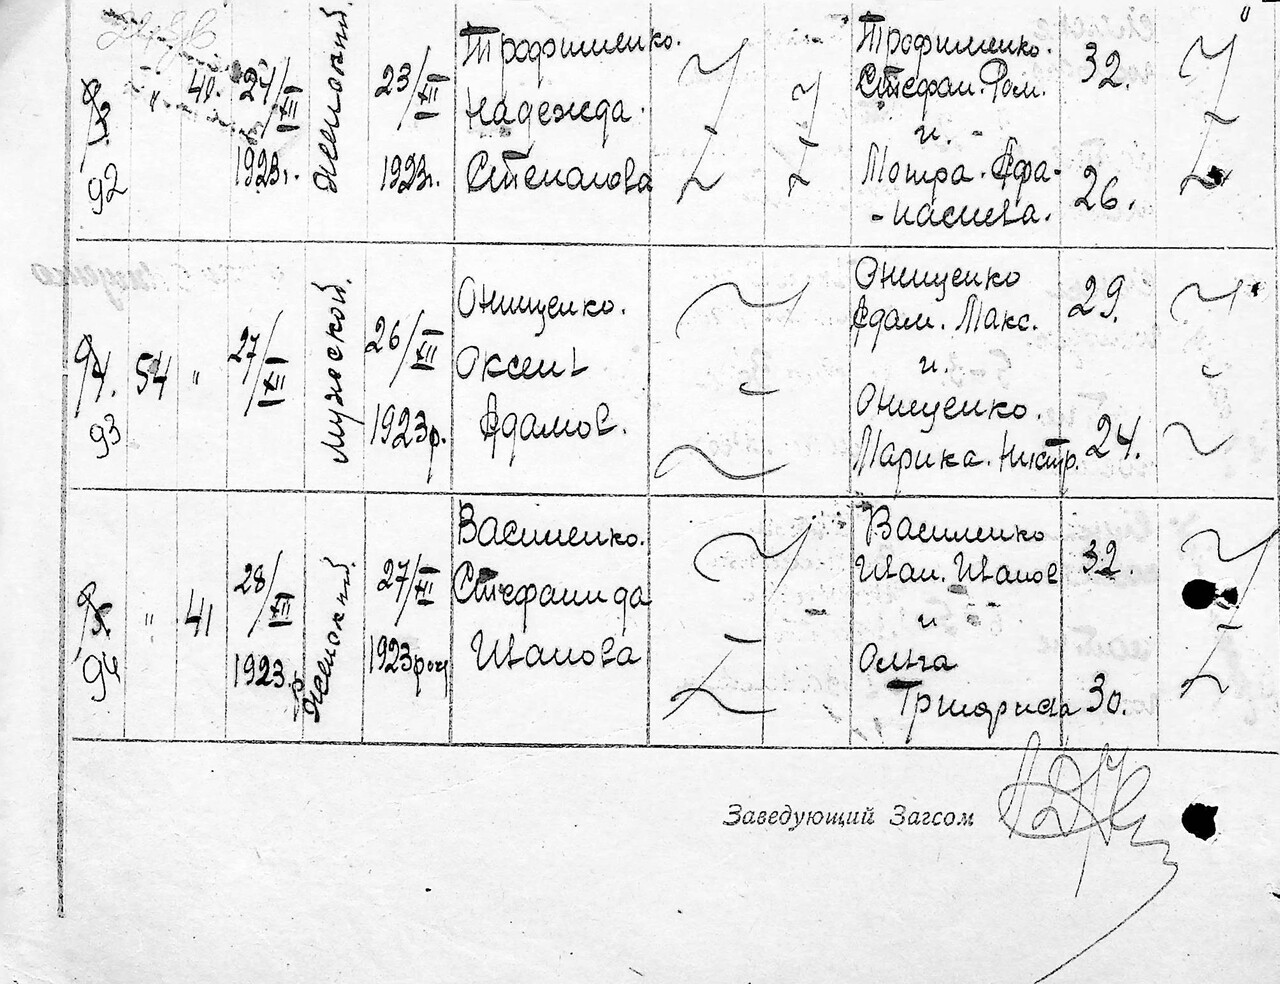 92
"
40.
24/XII
1923г.
Женский.
23/XII
1923г.
Трофименко.
Надежда.
Степанова
Трофименко.
Стефан. Ром.
и.
Мотра. Афа-
-насиева.
32.
26.
93
54
"
27/XII
Мужской.
26/XII
1923р.
Онищенко.
Оксент
Адамов.
Онищенко
Адам. Макс.
и.
Онищенко.
Марика. Никтр.
29.
24.
94
"
41
28/XII
1923.р.
Женский.
27/XII
1923
Василенко.
Стефанида
Иванова
Василенко
Иван. Иванов
и
Ольга
32.
30.
Заведующий Загсом